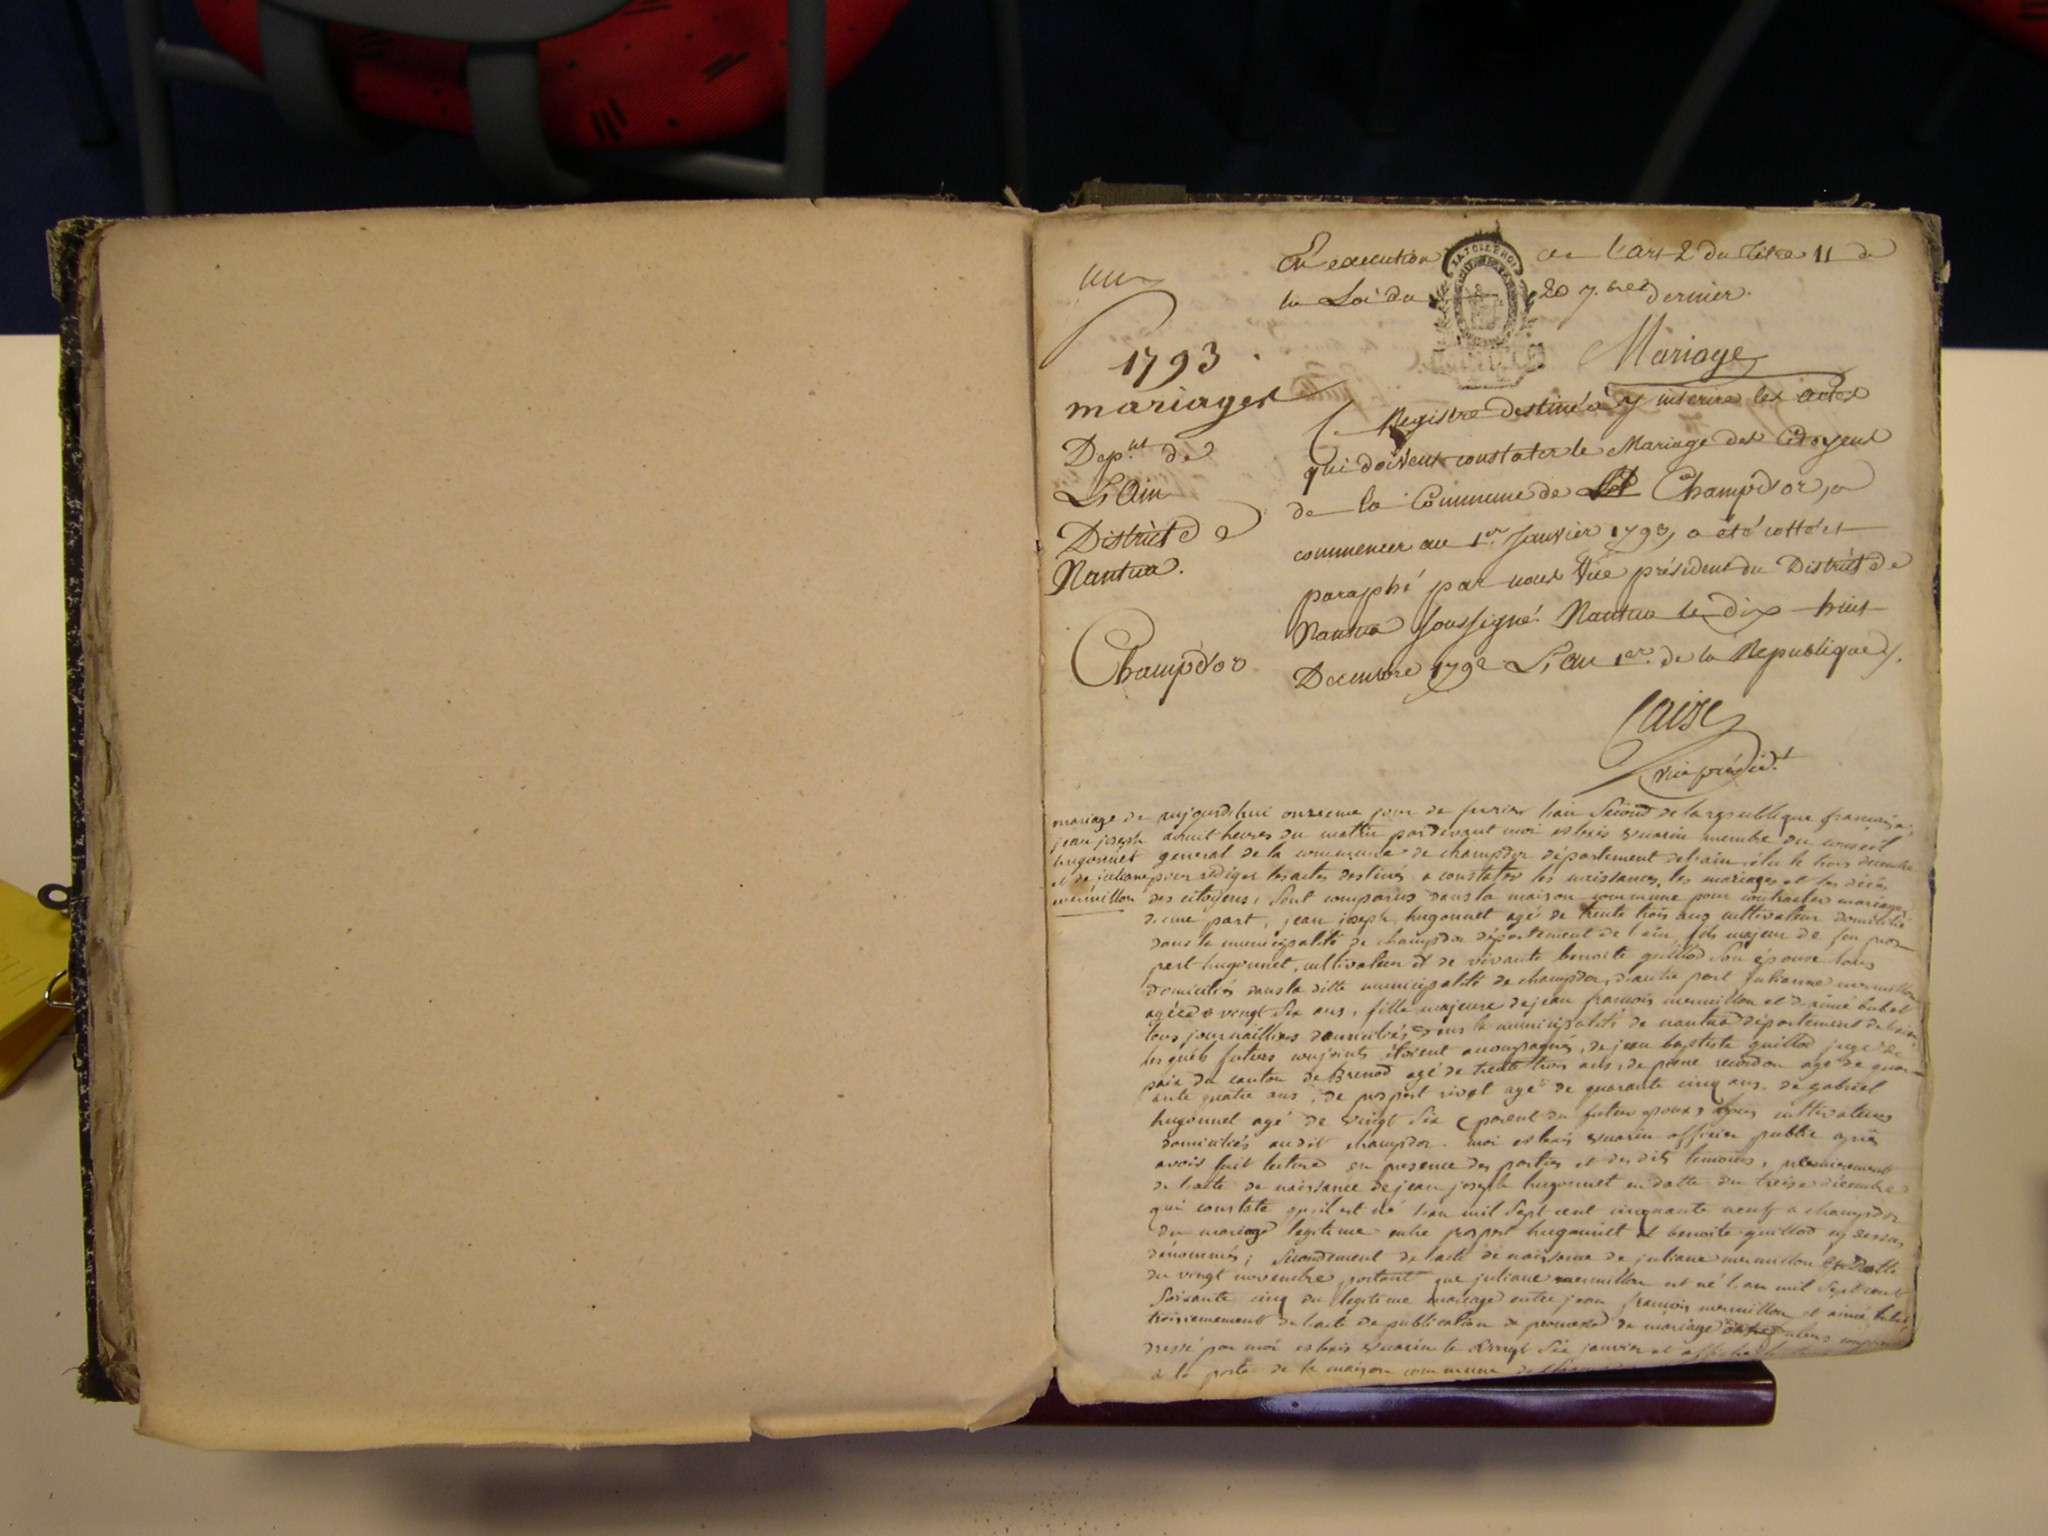 un
En execution de l'art 2 du titre 11 de
la Loi du 20 7.bre dernier.
1793
mariages
Mariage
Dep.nt de
L'Ain
District de
Nantua.
Champd'or
Registre destiné à y inscrire les actes
qui doivent constater le Mariage des Citoyens
de la Commune de Champd'or, a
commencer au 1.er Janvier 1793, a été cotté et
paraphé par nous Vice président du District de
Nantua soussigné. Nantua le dix huit
Decembre 1792 L'an 1.er de la Republique.
vice présid.t
mariage de
jean joseph
hugonnet
et de juliane
mermillon
aujourdhui onzieme jour de fevrier l'an second de la republique française,
a huit heures du mattin pardevant moi membre du conseil
general de la commune de champdor département de l'ain élu le trois decembre
pour rédiger les actes destinés a constater les naissances, les mariages et les décès
des citoyens, sont comparus dans la maison commune pour contracter mariage
d'une part, jean joseph hugonnet agé de trente trois ans cultivateur domicilié
dans la municipalité de champdor département de l'ain fils majeur de feu pros
pert hugonnet, cultivateur et de vivante benoite guillod son épouse tous
domiciliés dans la ditte municipalité de champdor, d'autre part julianne mermillon
agée de vingt six ans, fille majeure de jean francois mermillon et de aimé
tous journailliers domiciliés dans la municipalité de nantua département de l'ain
lesquels futurs conjoints étoient accompagnés, de jean baptiste guillod juge de
paix du canton de Brenod agé de trente trois ans, de pierre agé de quar
ante quatre ans, de prospert rivet agé de quarante cinq ans, de gabriel
hugonnet agé de vingt six parent du futur epoux tous cultivateurs
domiciliés audit champdor. moi officier public après
avoir fait lecture en presence des parties et des dits temoins, premierement
de l'acte de naissance de jean joseph hugonnet en datte du treize décembre
qui constate qu'il est né l'an mil sept cent cinquante neuf a champdor
du mariage legitime entre prospert hugonnet et benoite guillod cy dessus
dénommés; secondement de l'acte de naissance de juliane mermillon en datte
du vingt novembre portant que juliane mermillon est né l'an mil sept cent
soixante cinq du legitime mariage entre jean francois mermillon et aimé
troisiemement de l'acte de publication de promesse de mariage entre
dressé par moi le vingt six janvier et
a la porte de la maison commune de